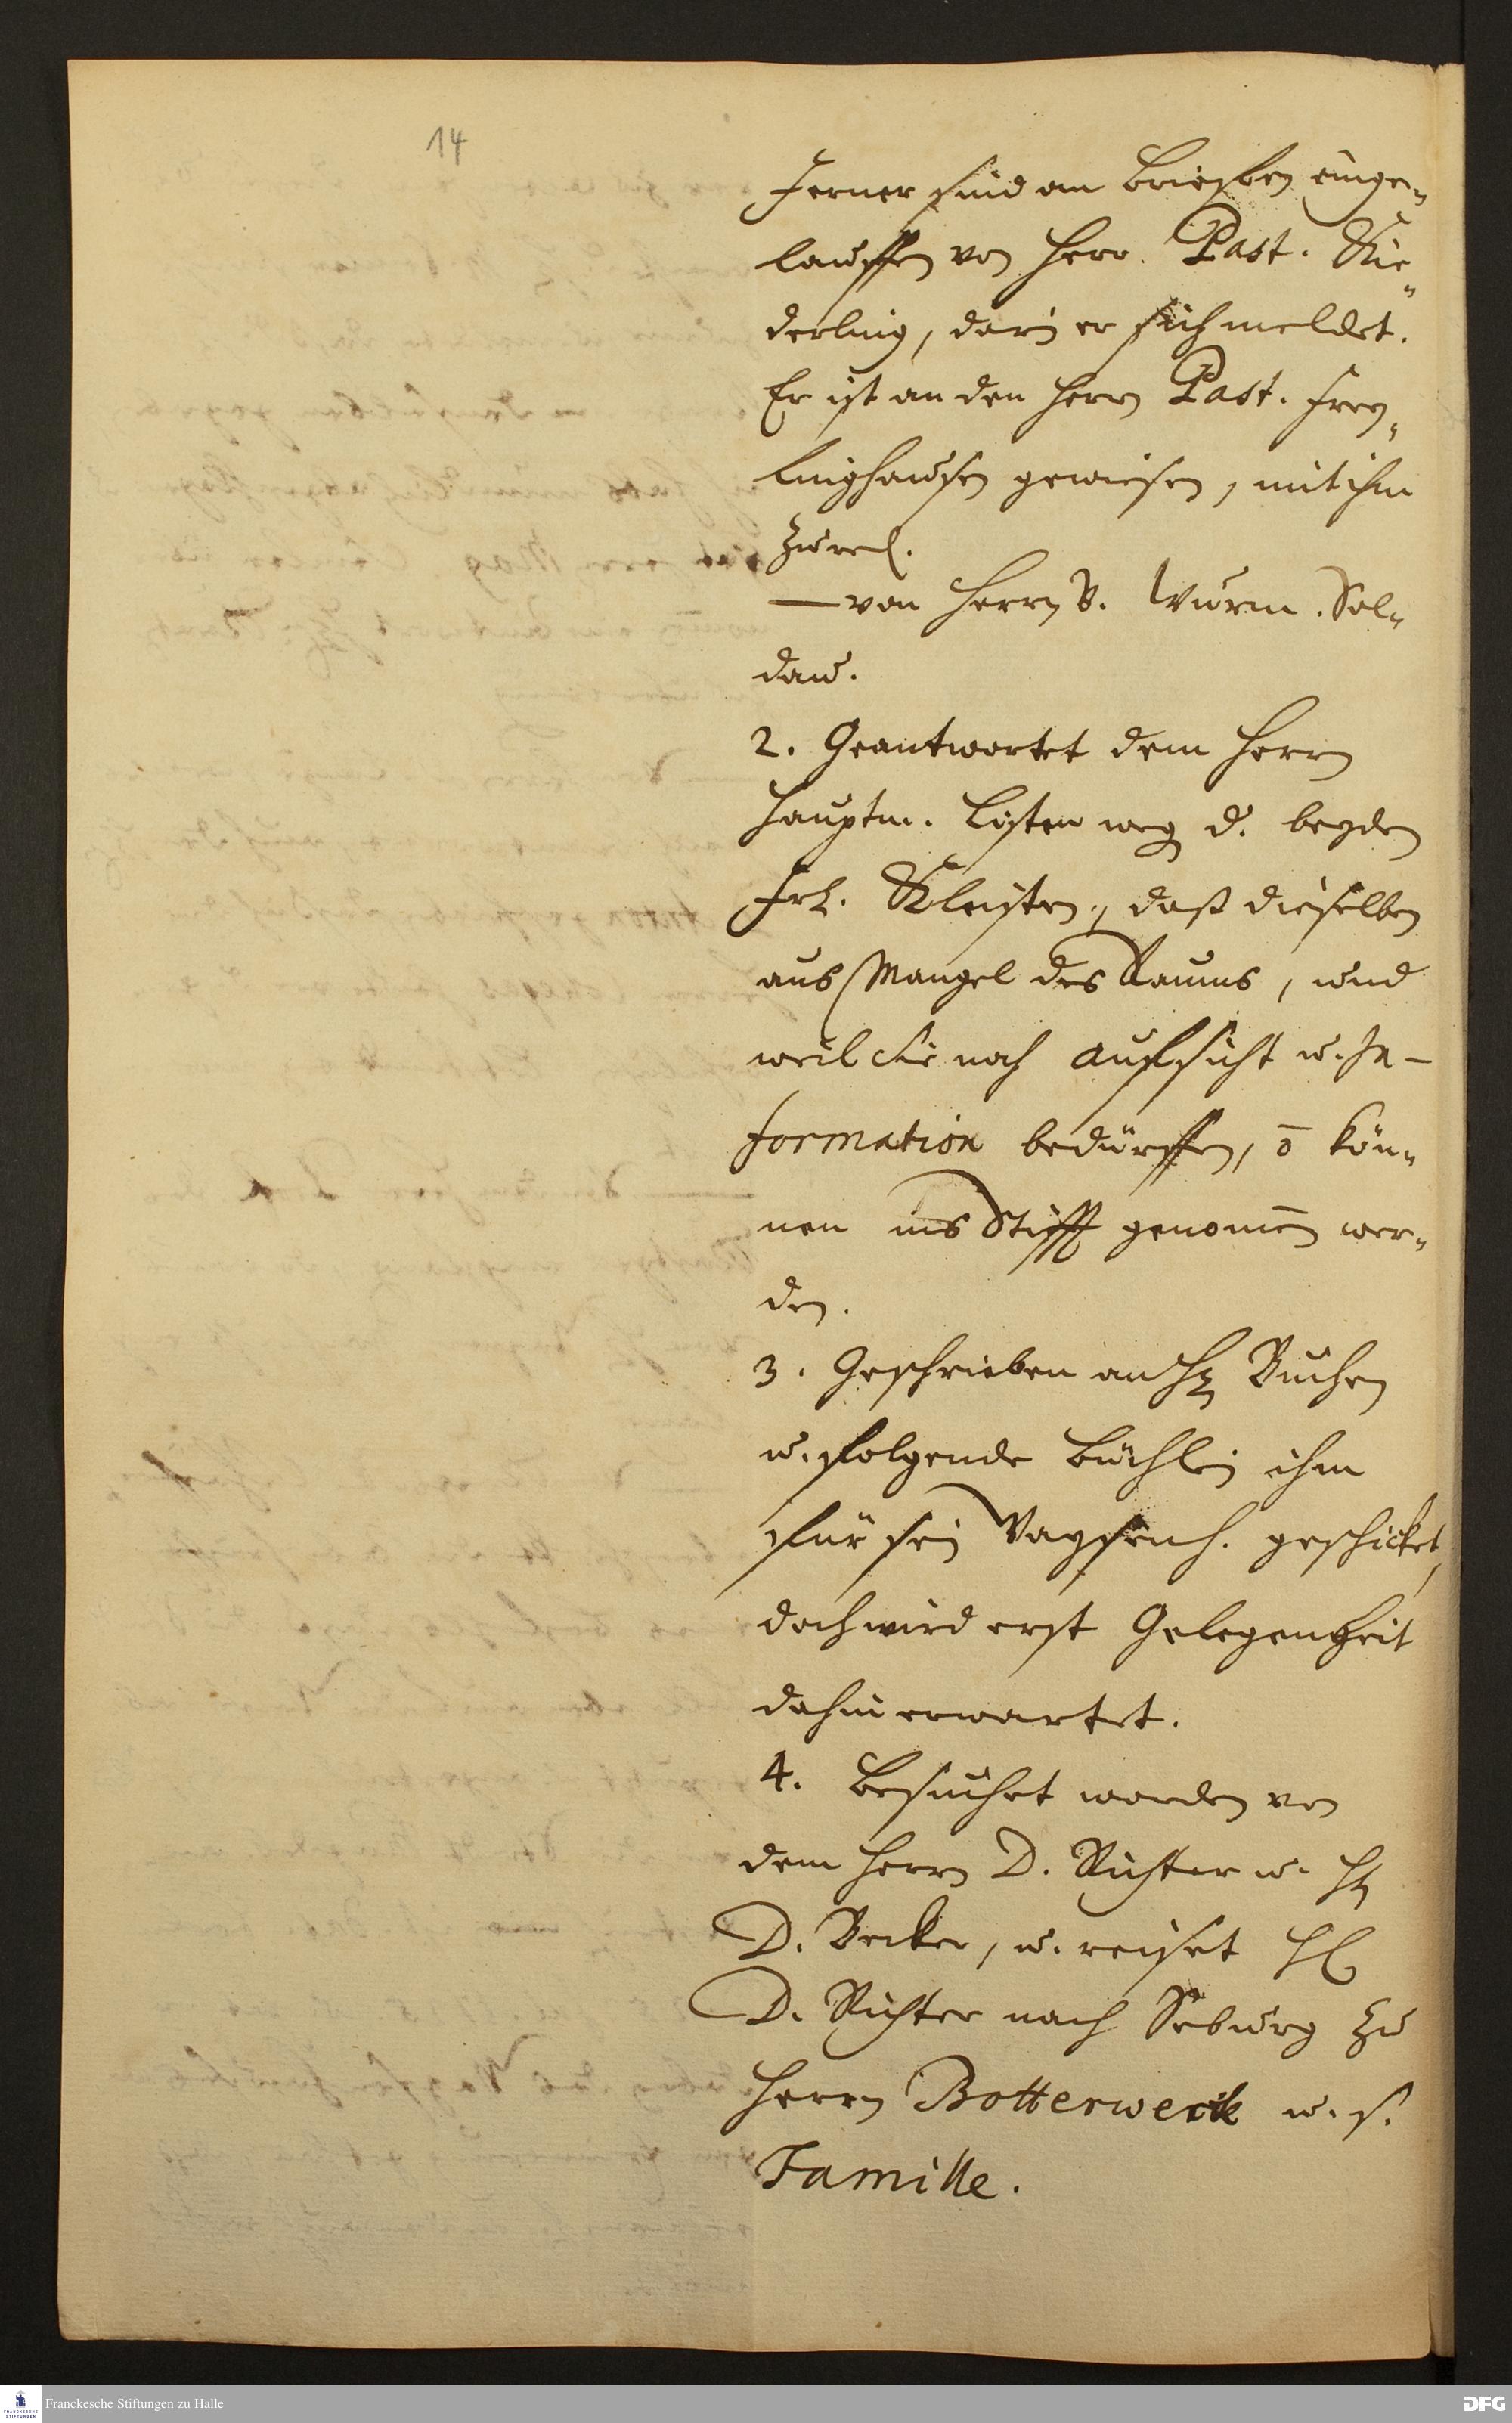 14
Ferner sind an Briefen einge-
lauffen von Herr. Past. Kie-
derling, darin er sich meldet.
Er ist an den Herrn Past. Frey-
linghausen gewiesen, mit ihm
zu red.
— von Herrn B. Wurm. Sol-
dau.
2. Geantwortet dem Herrn
Hauptm. Listen weg d. beyden
Frl. Kleisten, daß dieselben
aus Mangel des Raums, und
weil sie noch Aufsicht u. In-
formation bedürffen, ō kön-
nen ins Stifft genom̄en wer-
den.
3. Geschrieben an H. Buchen
u. folgende Büchlein ihm
für sein Waysenh. geschicket,
doch wird erst Gelegenheit
dahin erwartet.
4. Besuchet worden von
dem Herrn D. Richter u. H.
D. Becker, u. reiset H.
D. Richter nach Seburg zu
Herrn Botterweck u. s.
Famille.
Franckesche Stiftungen zu Halle
DFG